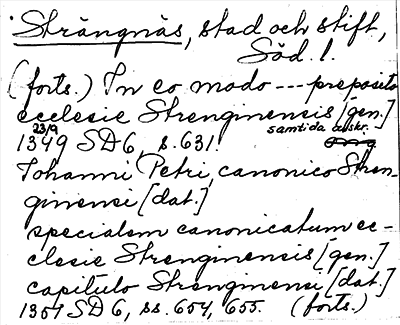 Strängnäs, stad och stift,
Söd. l.
(forts.) In eo modo --- preposito
ecclesie Strenginensis [gen.]
23/9 samtida avskr.
1349 SD 6, s. 631.
Johanni Petri, canonico Stren-
ginensi [dat.]
specialem canonicatum ec-
clesie Strenginensis [gen.]
capitulo Strenginensi [dat.]
1351 SD 6, ss. 654, 655. (forts.)